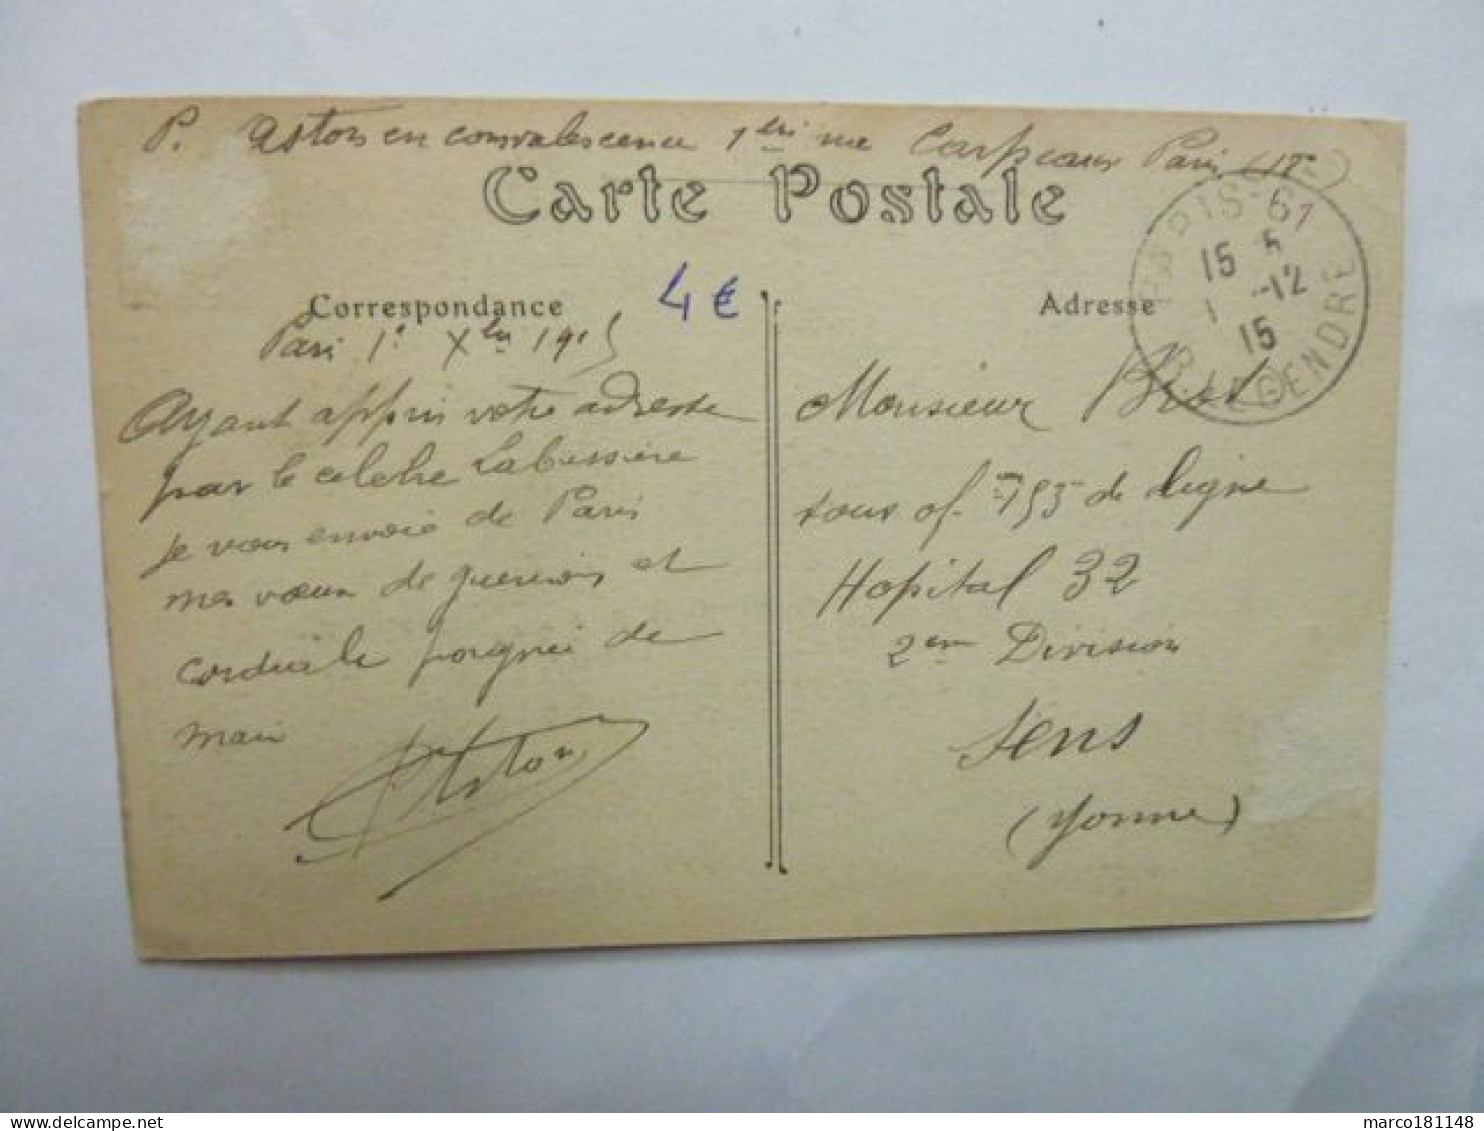 P. Aston en convalescence 1 rue Carpeaux Paris
Carte Postale
PARIS-61
15
1 -12
15
R. LEGENDRE
Correspondance
4 €
Adresse
Paris 1er Xbre 1915
Ayant appris votre adresse
par le célèbre Labussière
je vous envoie de Paris
mes vœux de guérison et
cordiale poignée de
main
Aston
Monsieur
sous of. de ligne
Hopital 32
2em Division
Sens
(Yonne)
marco181148